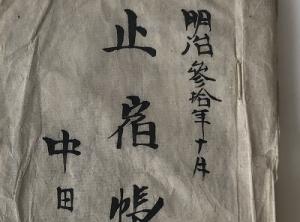 明治參拾年十月
止宿帳
中田